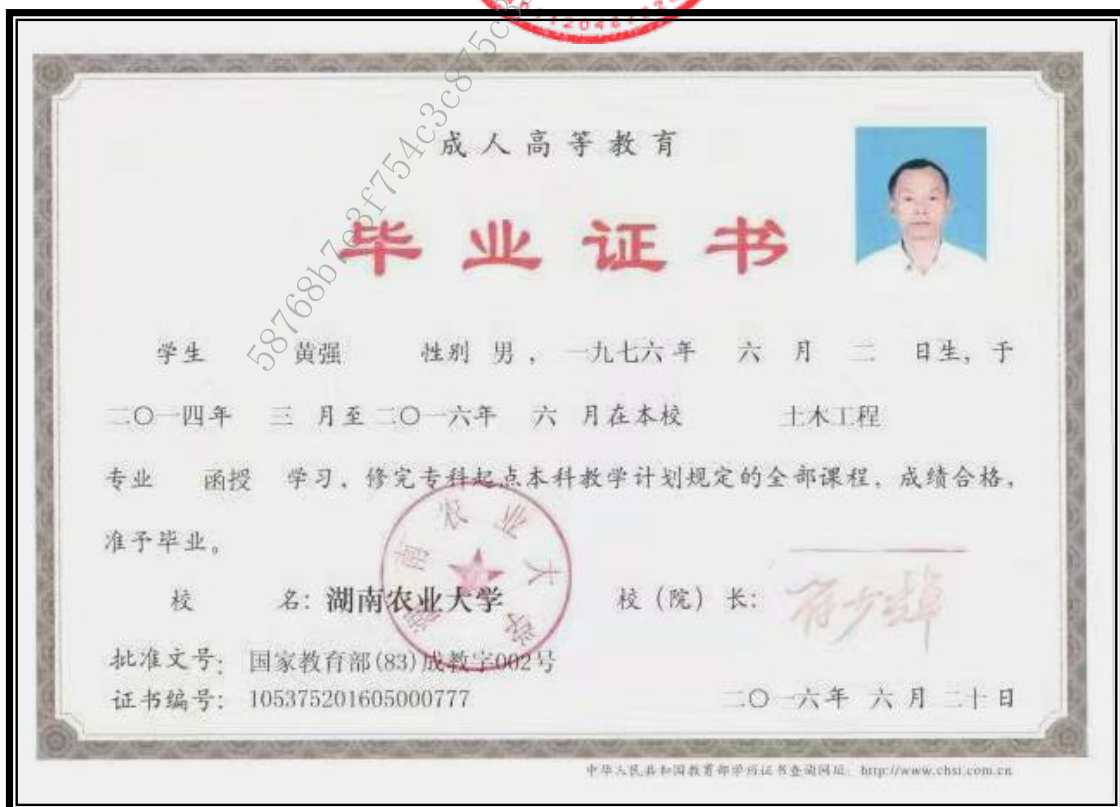 成人高等教育
毕业证书
学生 黄强 性别 男，一九七六年 六 月 二 日生，于
二〇一四年 三 月至二〇一六年 六 月在本校 土木工程
专业 函授 学习，修完专科起点本科教学计划规定的全部课程，成绩合格，
准予毕业。
校 名：湖南农业大学 校（院）长：
湖南农业大学
批准文号：国家教育部(83)成教字002号
证书编号：105375201605000777 二〇一六年 六 月 二十 日
中华人民共和国教育部学历证书查询网址：http://www.chsi.com.cn